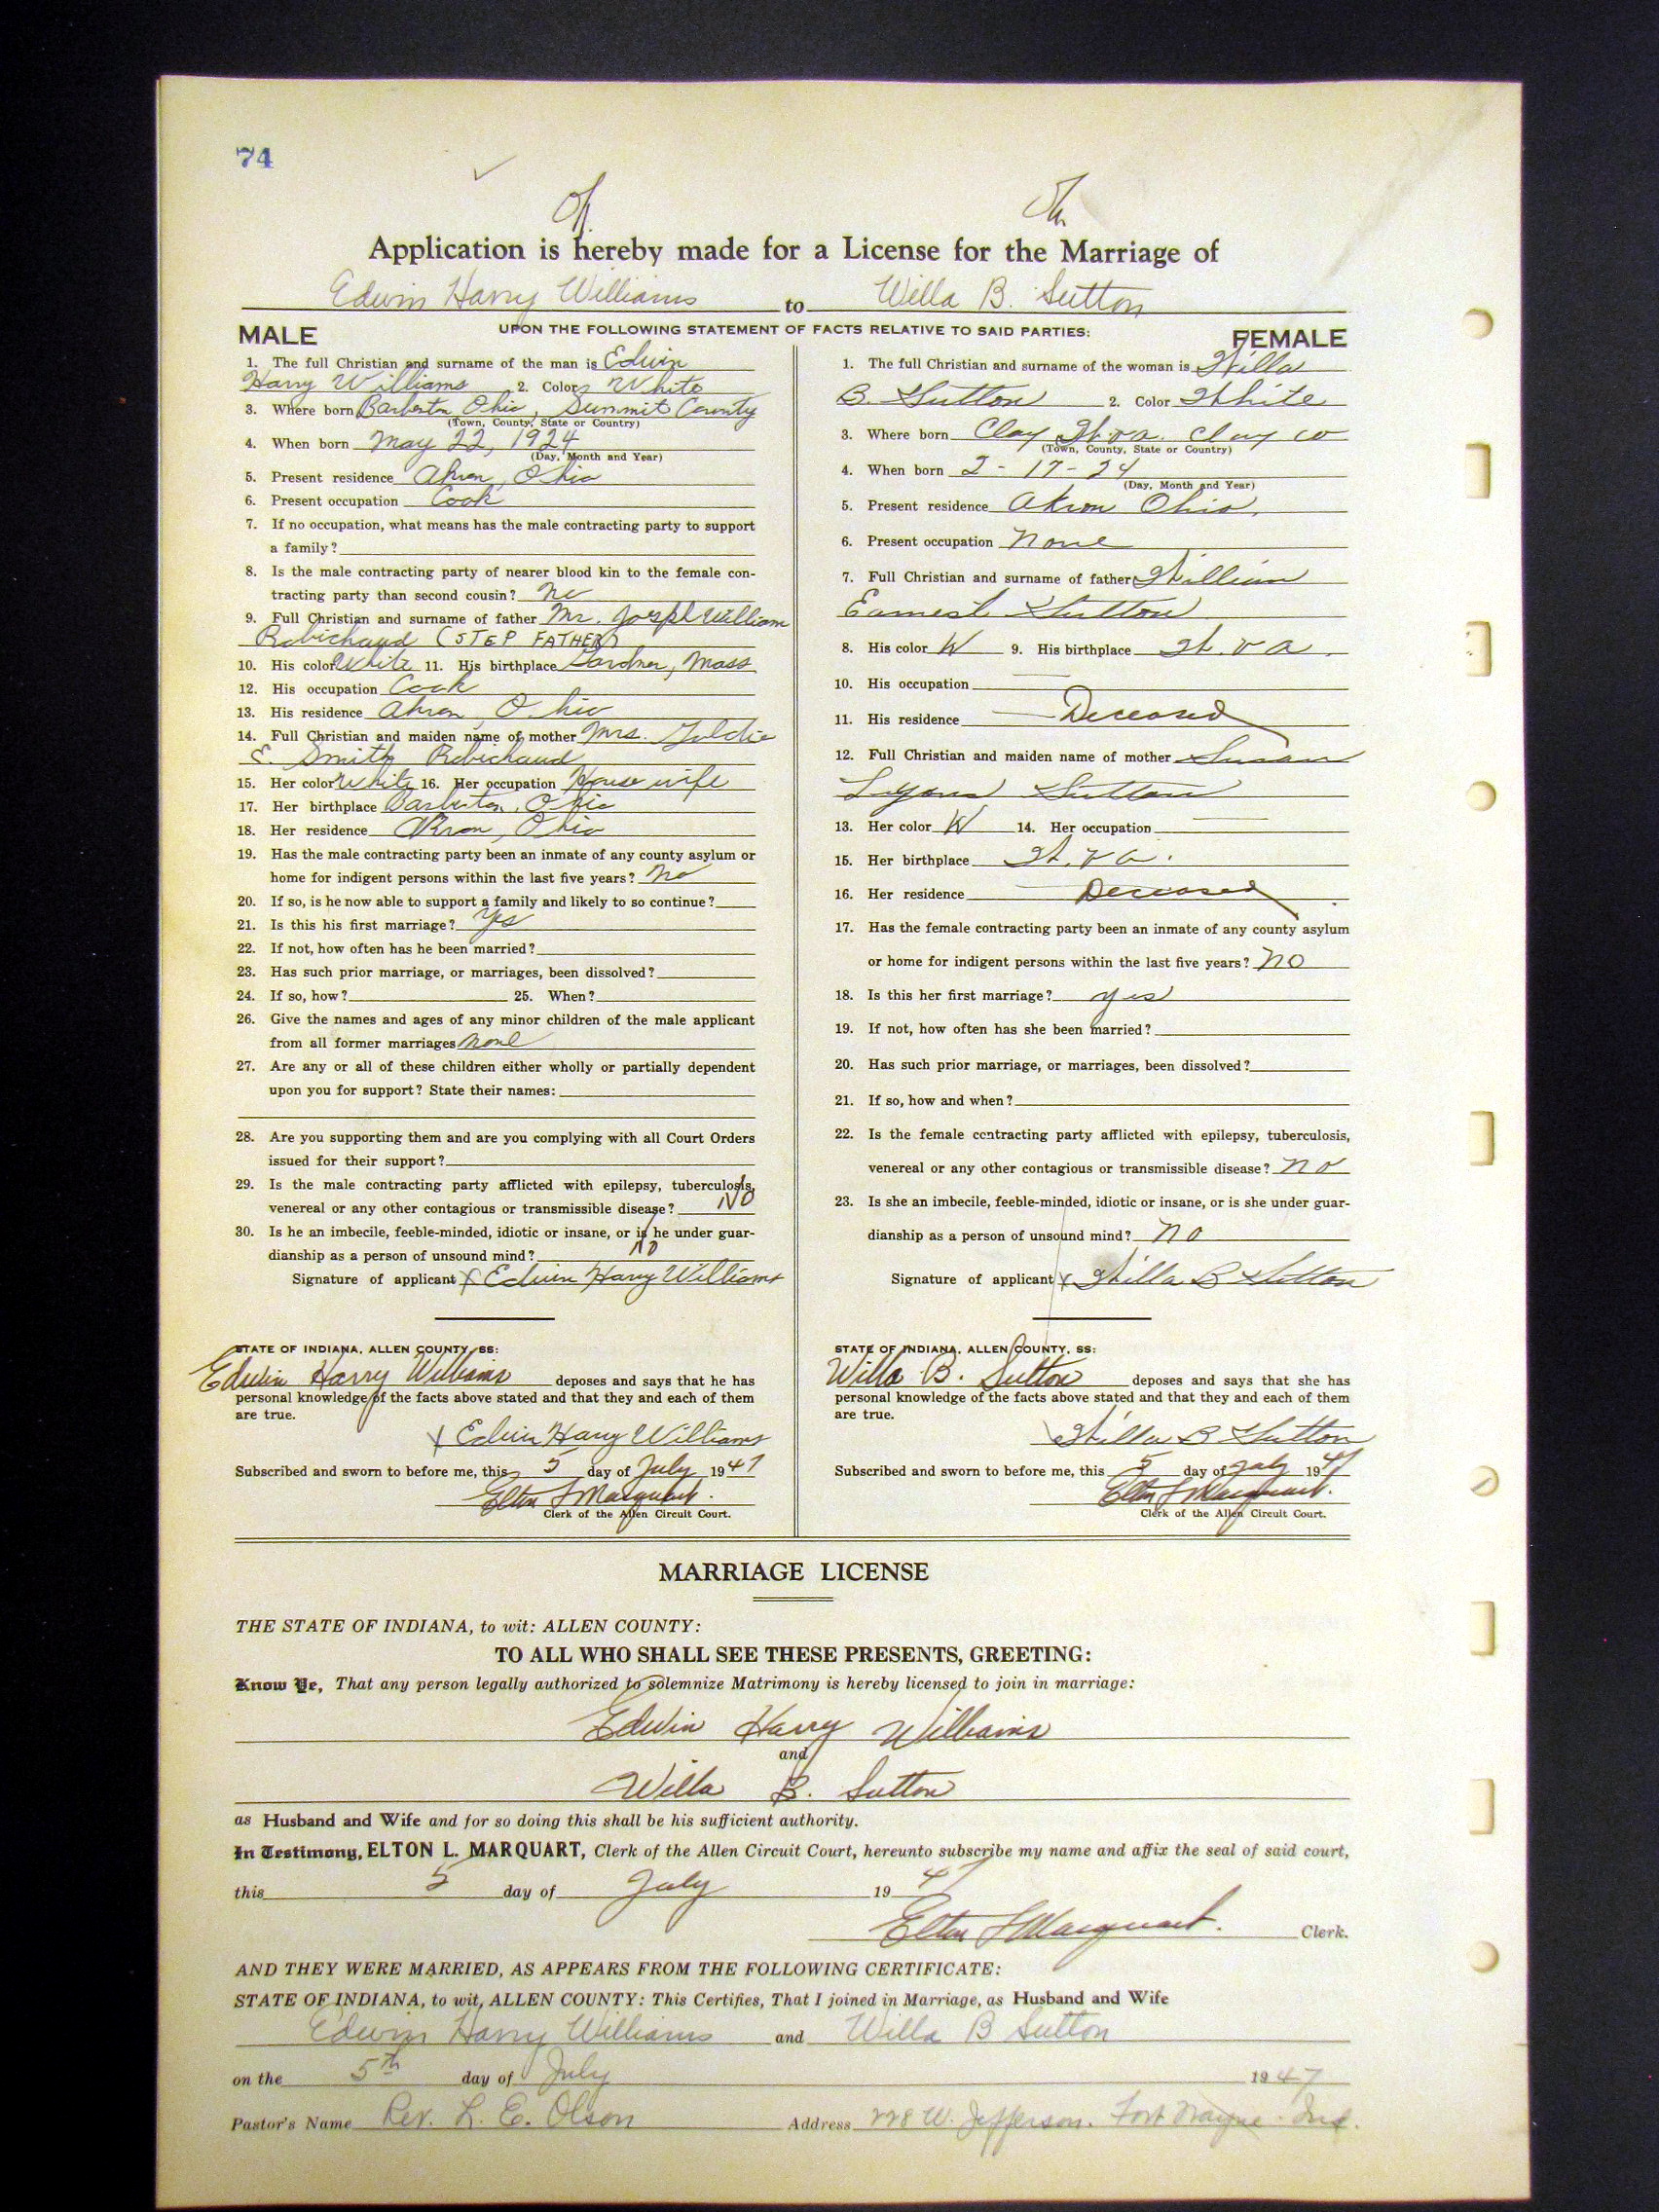 74
Application is hereby made for a License for the Marriage of
Edwin Harry Williams to Willa B. Sutton
UPON THE FOLLOWING STATEMENT OF FACTS RELATIVE TO SAID PARTIES:
MALE
1. The full Christian and surname of the man is Edwin
Harry Williams 2. Color White
3. Where born Barberton Ohio, Summit County
(Town, County, State or Country)
4. When born May 22, 1924
(Day, Month and Year)
5. Present residence Akron, Ohio
6. Present occupation Cook
7. If no occupation, what means has the male contracting party to support
a family?
8. Is the male contracting party of nearer blood kin to the female con-
tracting party than second cousin? No
9. Full Christian and surname of father Mr. Joseph William
Robichaud (STEP FATHER)
10. His color White 11. His birthplace Gardner, Mass
12. His occupation Cook
13. His residence Akron, Ohio
14. Full Christian and maiden name of mother Mrs. Goldie
E. Smith Robichaud
15. Her color White 16. Her occupation House wife
17. Her birthplace Barberton, Ohio
18. Her residence Akron, Ohio
19. Has the male contracting party been an inmate of any county asylum or
home for indigent persons within the last five years? No
20. If so, is he now able to support a family and likely to so continue?
21. Is this his first marriage? Yes
22. If not, how often has he been married?
23. Has such prior marriage, or marriages, been dissolved?
24. If so, how? 25. When?
26. Give the names and ages of any minor children of the male applicant
from all former marriages none
27. Are any or all of these children either wholly or partially dependent
upon you for support? State their names:
28. Are you supporting them and are you complying with all Court Orders
issued for their support?
29. Is the male contracting party afflicted with epilepsy, tuberculosis,
venereal or any other contagious or transmissible disease? NO
30. Is he an imbecile, feeble-minded, idiotic or insane, or is he under guar-
dianship as a person of unsound mind? no
Signature of applicant X Edwin Harry Williams
STATE OF INDIANA, ALLEN COUNTY, SS:
Edwin Harry Williams deposes and says that he has
personal knowledge of the facts above stated and that they and each of them
are true.
X Edwin Harry Williams
Subscribed and sworn to before me, this 5 day of July 1947
Elton L Marquart.
Clerk of the Allen Circuit Court.
FEMALE
1. The full Christian and surname of the woman is Willa
B. Sutton 2. Color White
3. Where born Clay W.va. Clay co
(Town, County, State or Country)
4. When born 2-17-24
(Day, Month and Year)
5. Present residence Akron Ohio.
6. Present occupation None
7. Full Christian and surname of father William
Earnest Sutton
8. His color W 9. His birthplace W. va.
10. His occupation
11. His residence Deceased
12. Full Christian and maiden name of mother Susan
Lyons Sutton
13. Her color W 14. Her occupation
15. Her birthplace W. va.
16. Her residence Deceased
17. Has the female contracting party been an inmate of any county asylum
or home for indigent persons within the last five years? no
18. Is this her first marriage? yes
19. If not, how often has she been married?
20. Has such prior marriage, or marriages, been dissolved?
21. If so, how and when?
22. Is the female contracting party afflicted with epilepsy, tuberculosis,
venereal or any other contagious or transmissible disease? no
23. Is she an imbecile, feeble-minded, idiotic or insane, or is she under guar-
dianship as a person of unsound mind? no
Signature of applicant X Willa B Sutton
STATE OF INDIANA, ALLEN COUNTY, SS:
Willa B. Sutton deposes and says that she has
personal knowledge of the facts above stated and that they and each of them
are true.
Willa B Sutton
Subscribed and sworn to before me, this 5 day of July 1947
Elton L Marquart.
Clerk of the Allen Circuit Court.
MARRIAGE LICENSE
THE STATE OF INDIANA, to wit: ALLEN COUNTY:
TO ALL WHO SHALL SEE THESE PRESENTS, GREETING:
Know Ye, That any person legally authorized to solemnize Matrimony is hereby licensed to join in marriage:
Edwin Harry Williams
and
Willa B. Sutton
as Husband and Wife and for so doing this shall be his sufficient authority.
In Testimony, ELTON L. MARQUART, Clerk of the Allen Circuit Court, hereunto subscribe my name and affix the seal of said court,
this 5 day of July 1947
Elton L Marquart. Clerk.
AND THEY WERE MARRIED, AS APPEARS FROM THE FOLLOWING CERTIFICATE:
STATE OF INDIANA, to wit, ALLEN COUNTY: This Certifies, That I joined in Marriage, as Husband and Wife
Edwin Harry Williams and Willa B Sutton
on the 5th day of July 1947
Pastor's Name Rev. L. E. Olson Address 228 W. Jefferson. Fort Wayne. Ind.